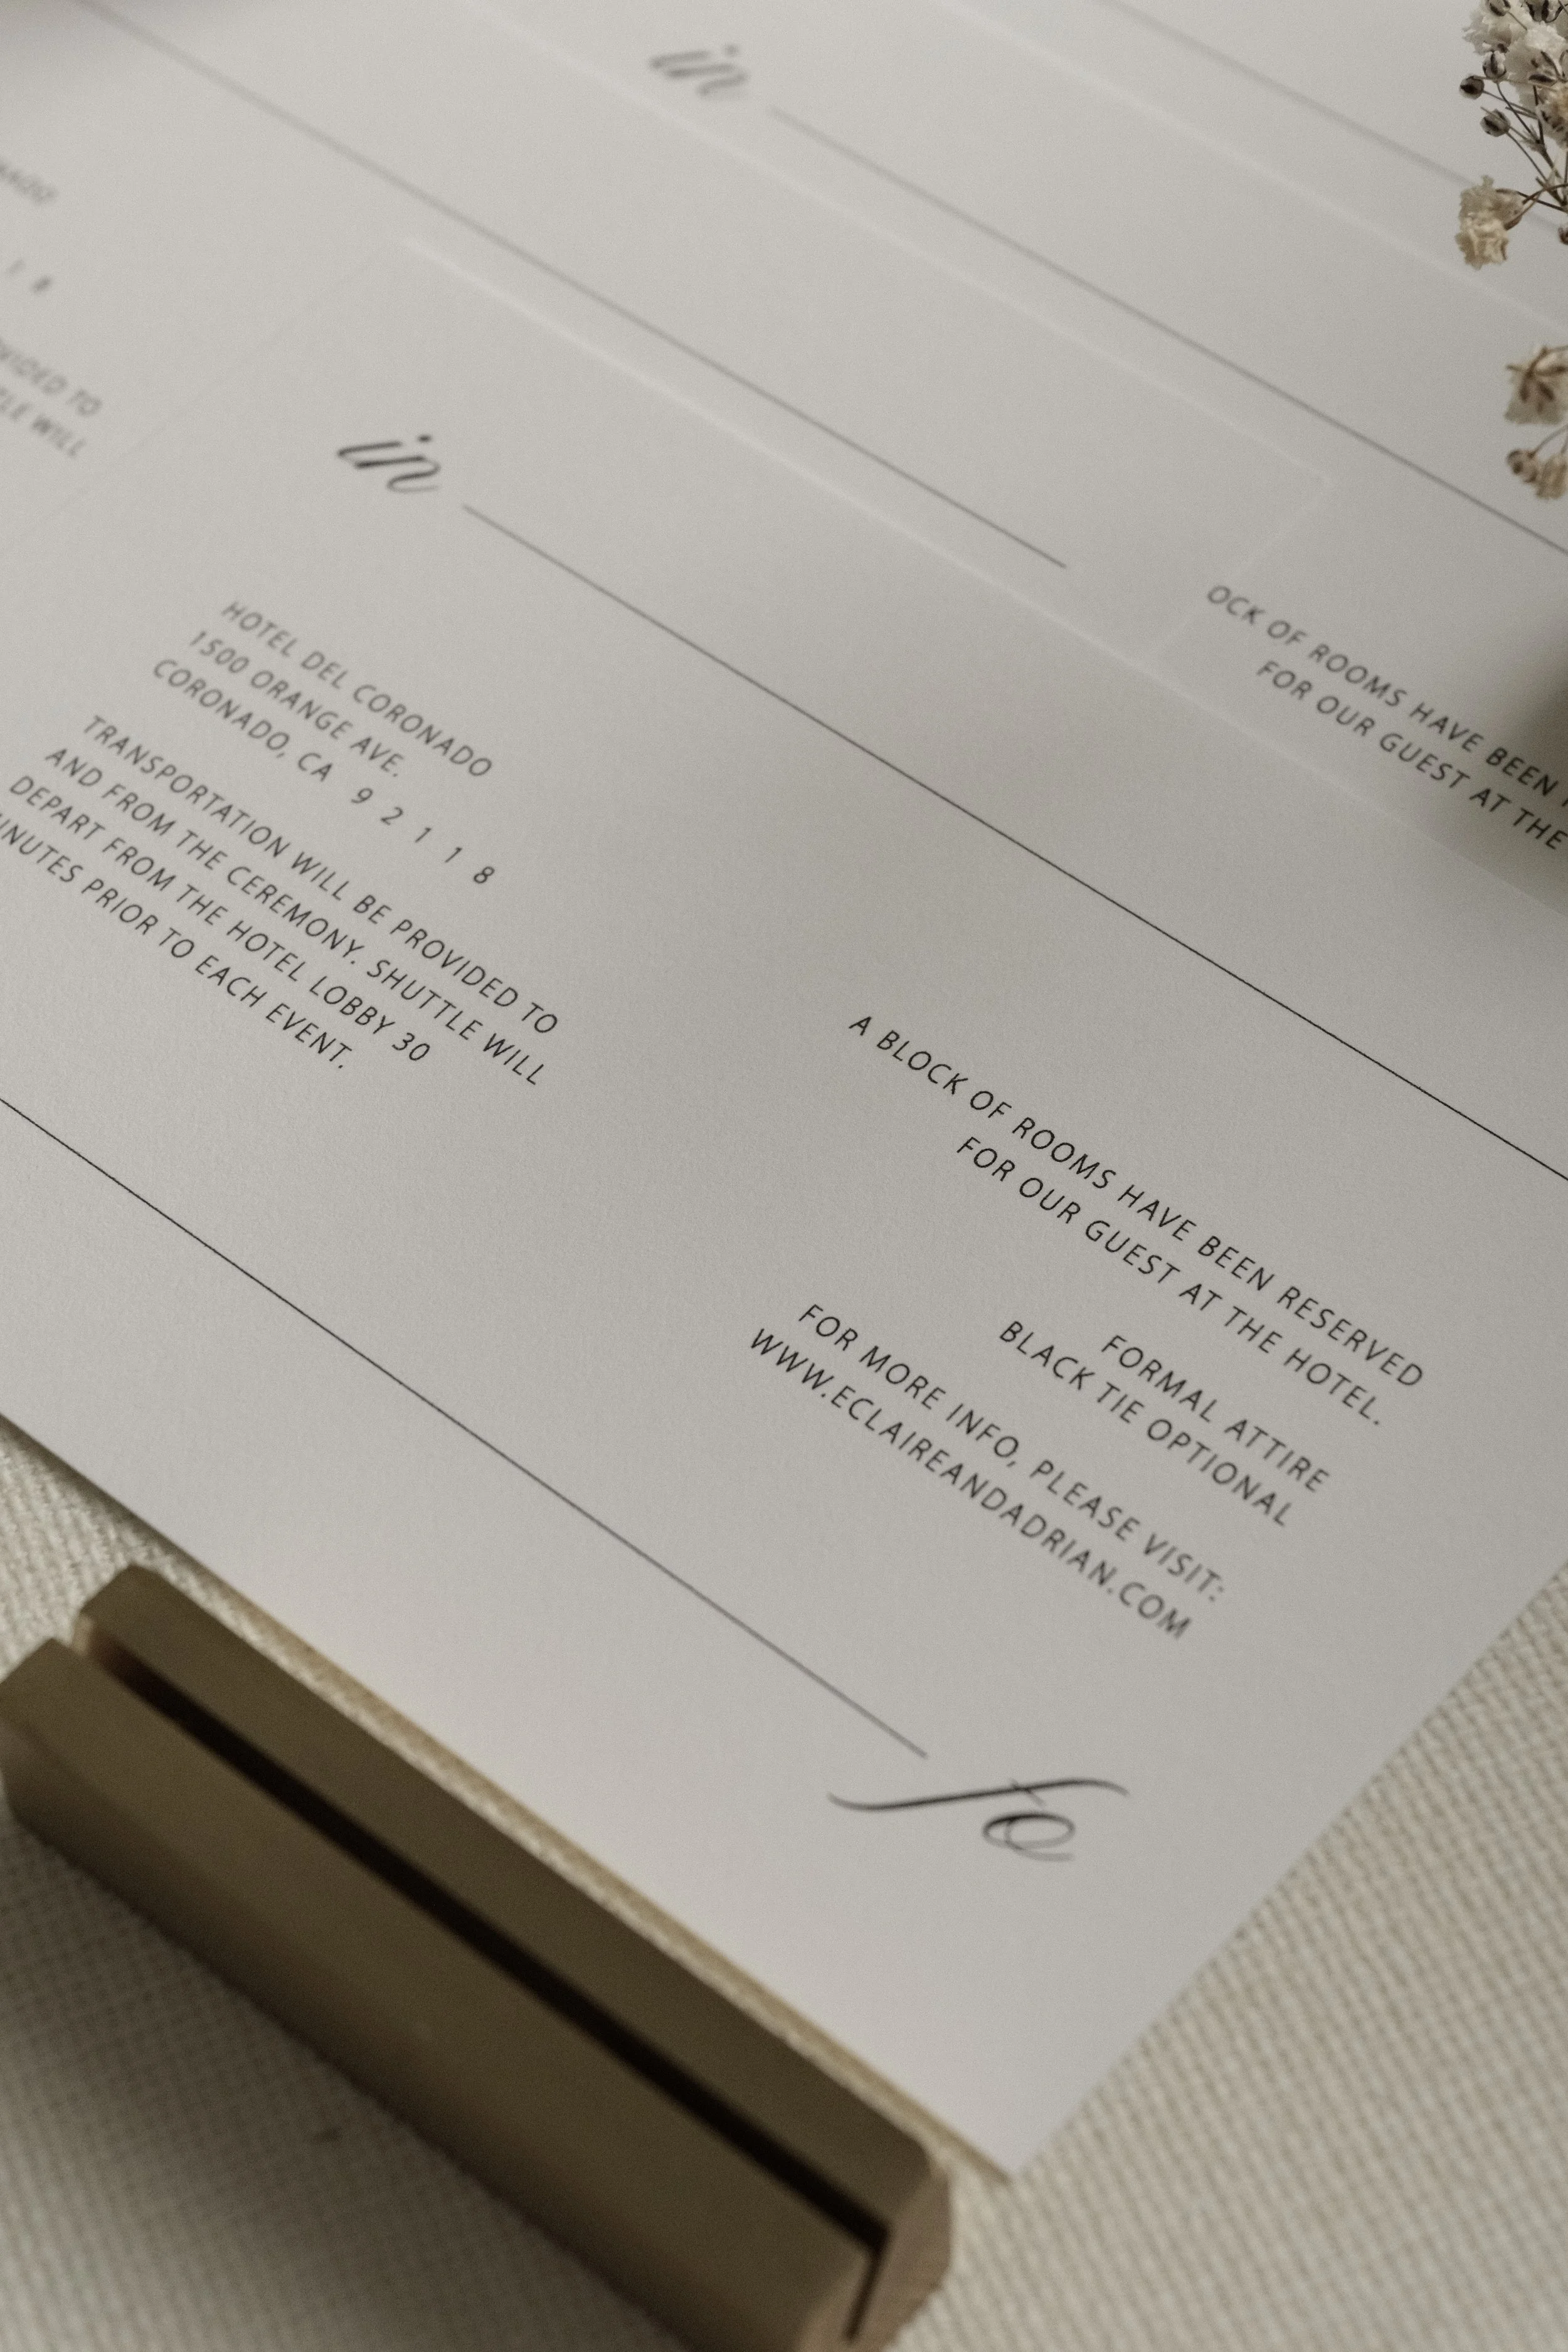 in
in
HOTEL DEL CORONADO
1500 ORANGE AVE.
CORONADO, CA 9 2 1 1 8
TRANSPORTATION WILL BE PROVIDED TO
AND FROM THE CEREMONY. SHUTTLE WILL
DEPART FROM THE HOTEL LOBBY 30
PRIOR TO EACH EVENT.
A BLOCK OF ROOMS HAVE BEEN RESERVED
FOR OUR GUEST AT THE HOTEL.
FORMAL ATTIRE
BLACK TIE OPTIONAL
FOR MORE INFO, PLEASE VISIT:
WWW.ECLAIREANDADRIAN.COM
fo
OF ROOMS HAVE BEEN
FOR OUR GUEST AT THE
TO
WILL